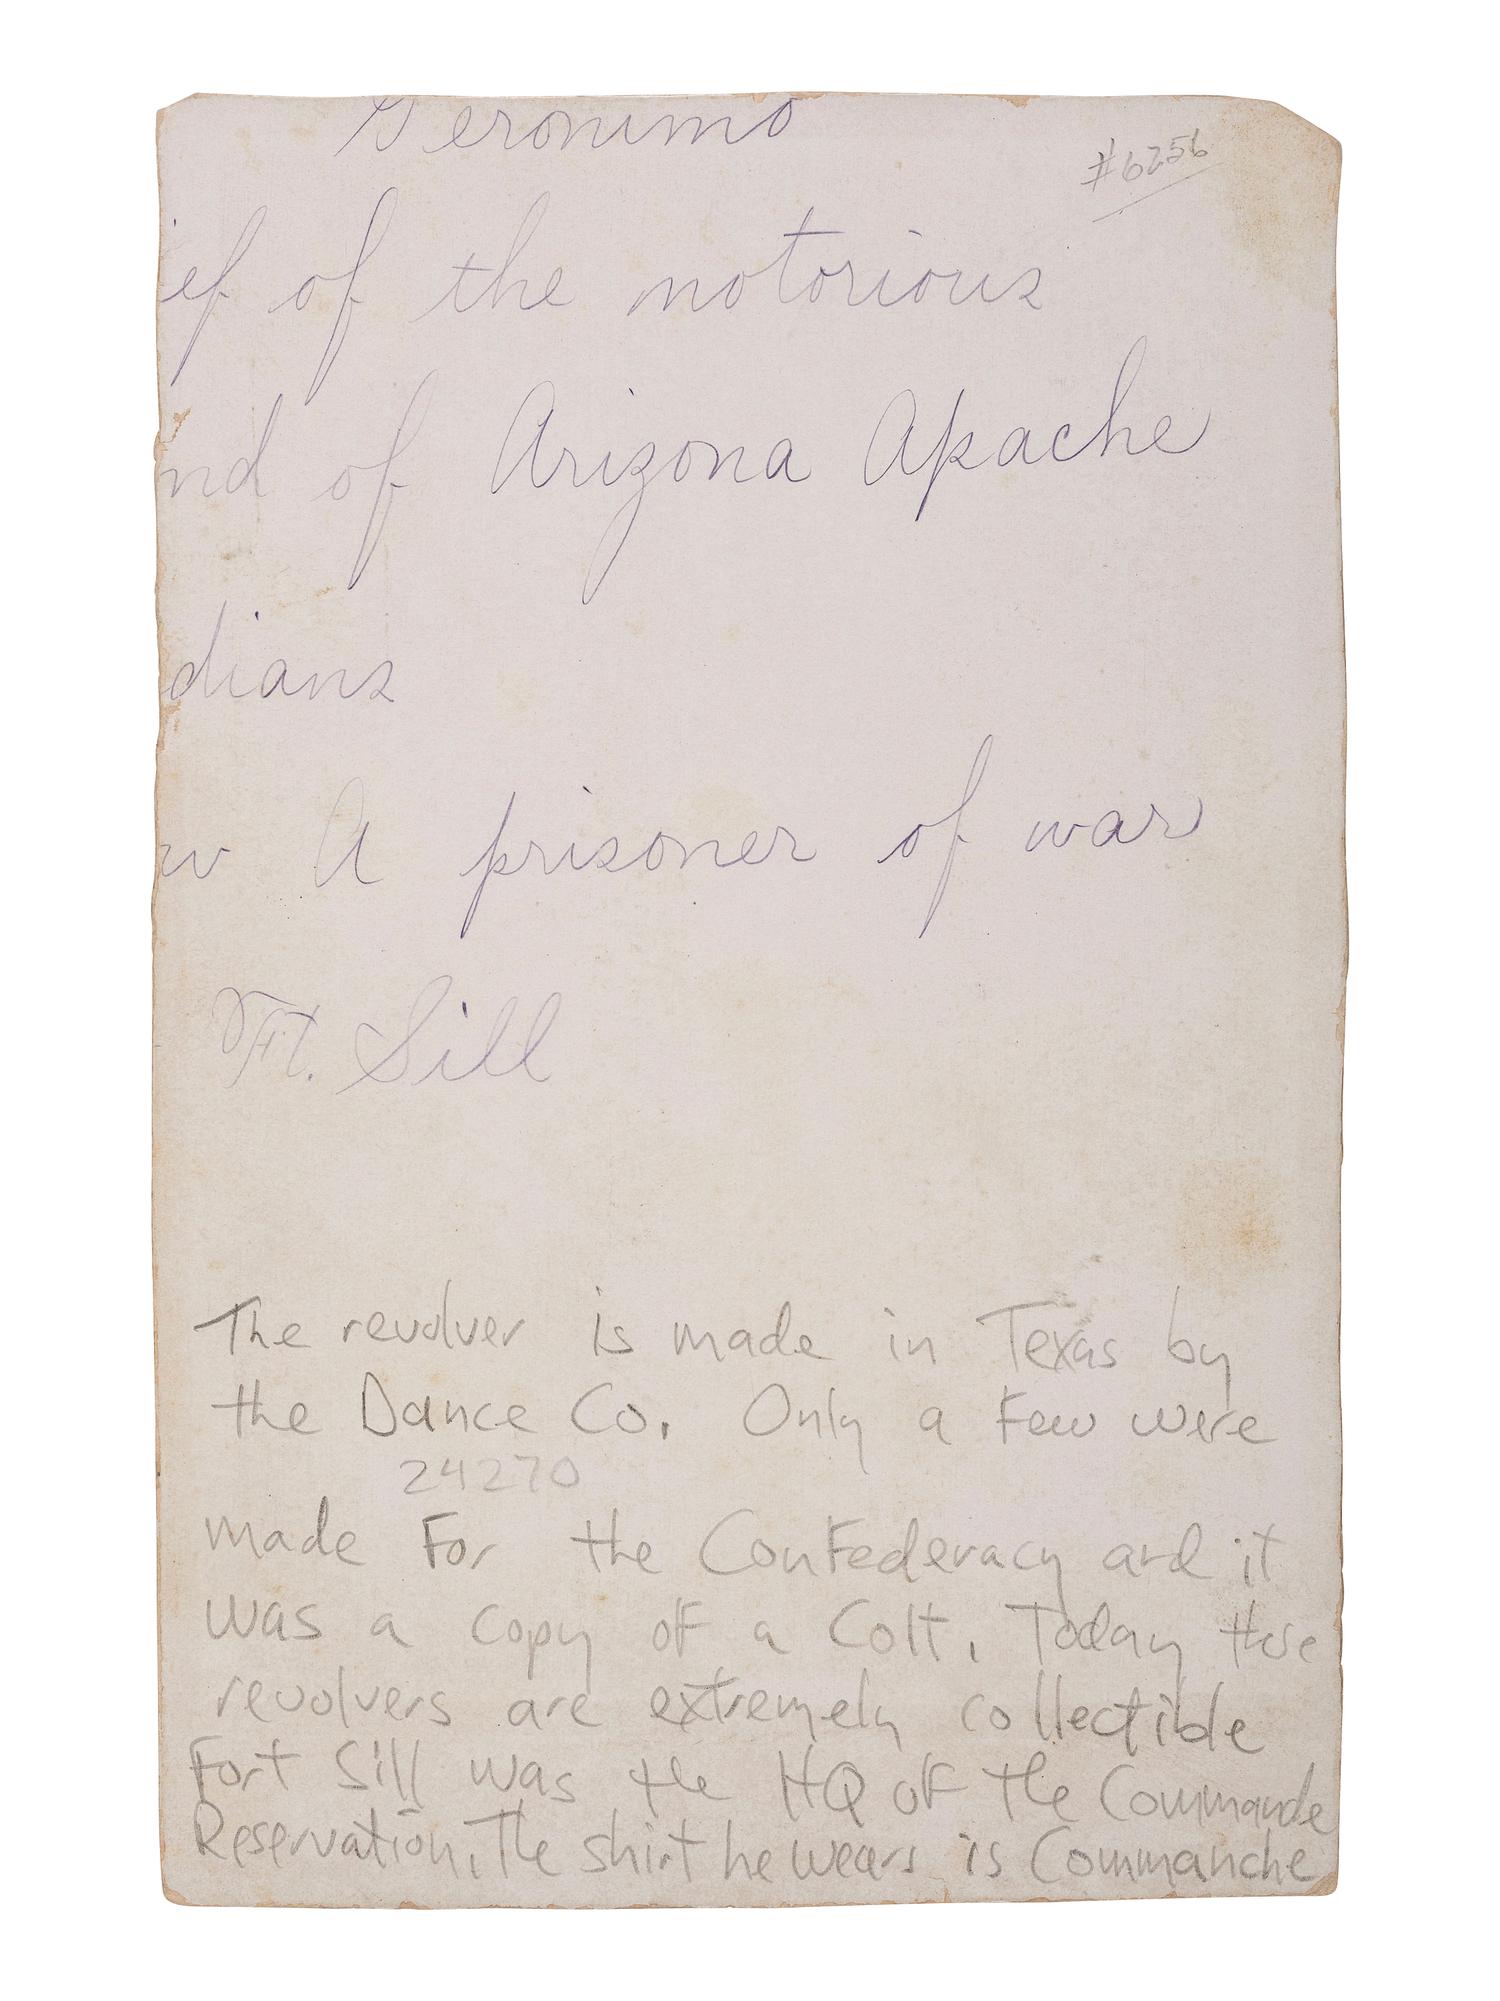 Geronimo
#6256
ef of the notorious
nd of Arizona Apache
dians
w A prisoner of war
Ft. Sill
The revolver is made in Texas by
the Dance Co. Only a Few were
24270
made For the ConFederacy and it
was a copy oF a Colt. Today these
revolvers are extremely collectible
Fort Sill was the HQ oF the Commanche
Reservation, The shirt he wears is Commanche